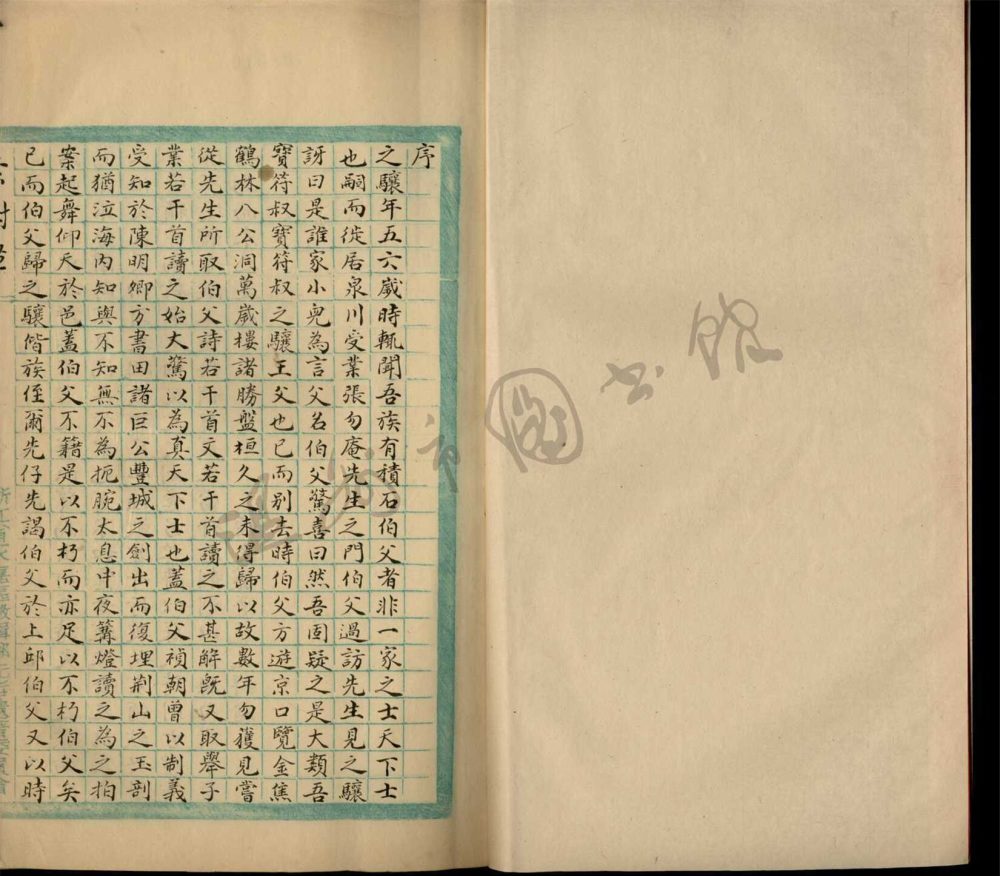 序
之驤年五六歲時輒聞吾族有積石伯父者非一家之士天下士
也嗣而徙居泉川受業張勿庵先生之門伯父過訪先生見之驤
訝曰是誰家小兒為言父名伯父驚喜曰然吾固疑之是大類吾
寶符叔寶符叔之驤王父也已而別去時伯父方遊京口覽金焦
鶴林八公洞萬歲樓諸勝盤桓久之未得歸以故數年勿獲見嘗
從先生所取伯父詩若干首文若干首讀之不甚解既又取舉子
業若干首讀之始大驚以為真天下士也蓋伯父禎朝曾以制義
受知於陳明卿方書田諸巨公豐城之劍出而復埋荆山之玉剖
而猶泣海內知與不知無不為扼腕太息中夜篝燈讀之為之拍
案起舞仰天於邑蓋伯父不籍是以不朽而亦足以不朽伯父矣
已而伯父歸之驤偕族侄爾先仔先謁伯父於上邱伯父又以時
圖書館